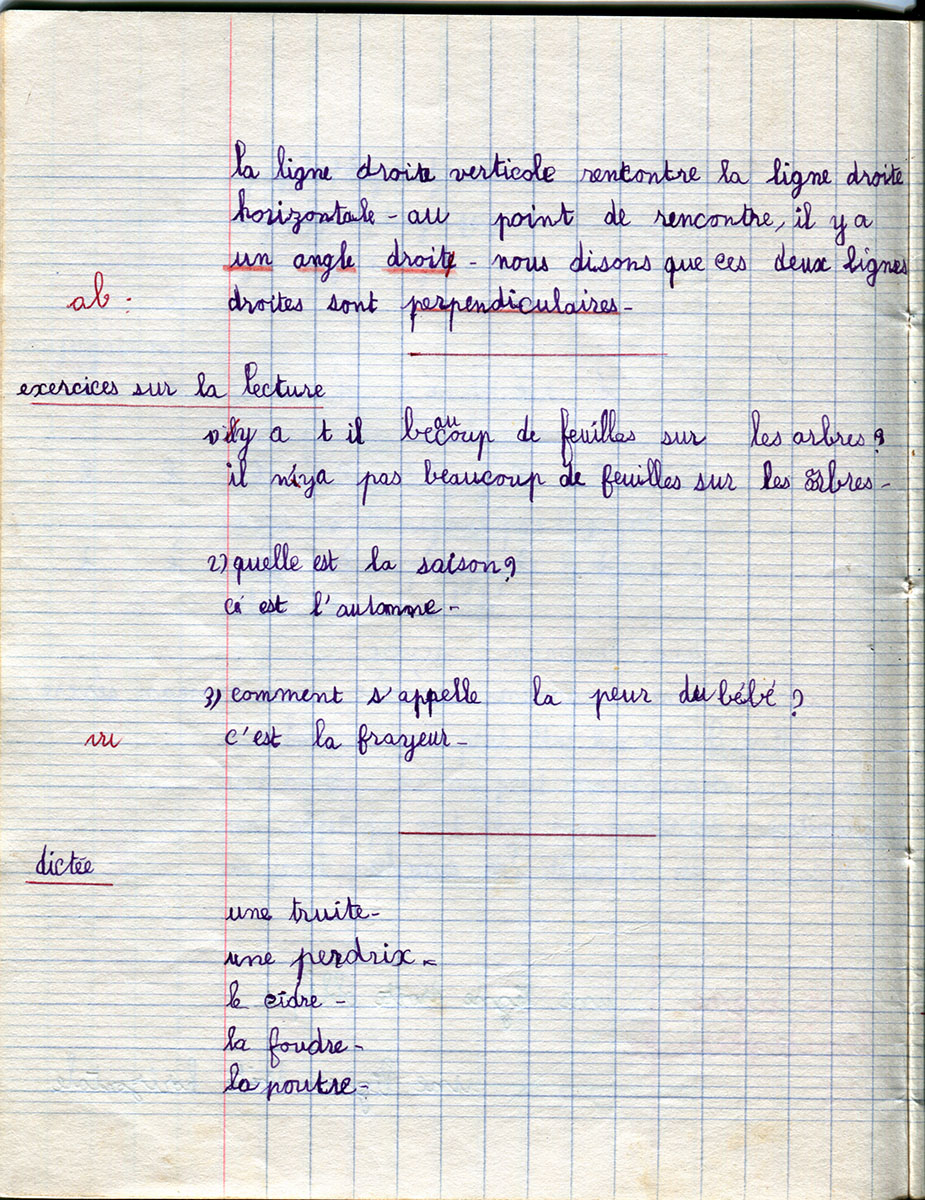 la ligne droite verticale rencontre la ligne droite
horizontale - au point de rencontre, il y a
un angle droit - nous disons que ces deux lignes
ab :
droites sont perpendiculaires -
exercices sur la lecture
1) il y a t il beaucoup de feuilles sur les arbres ?
il n'y a pas beaucoup de feuilles sur les arbres -
2) quelle est la saison ?
c'est l'automne -
3) comment s'appelle la peur du bébé ?
c'est la frayeur -
dictée
une truite -
une perdrix -
le cidre -
la foudre -
la poutre -